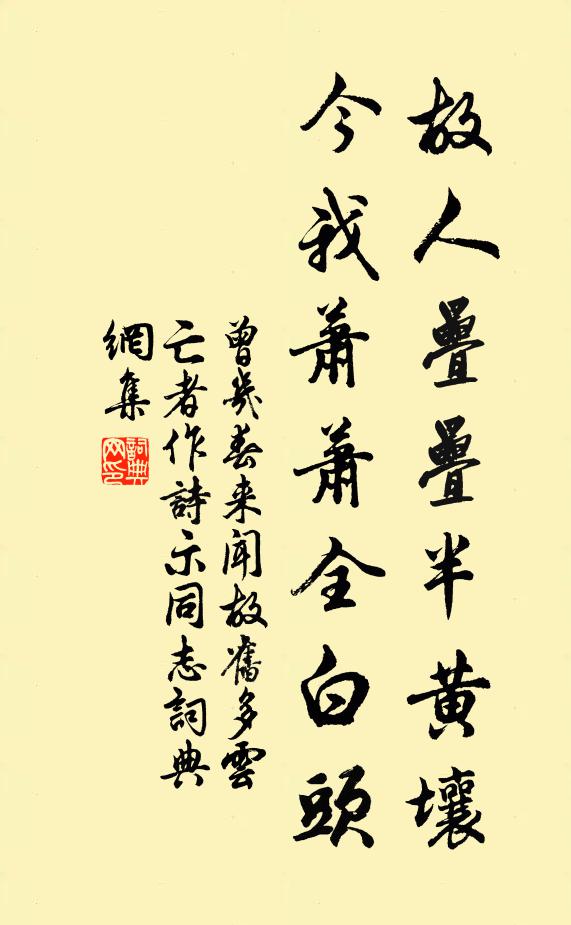 故人疊疊半黃壤
今我蕭蕭全白頭
曾幾春来聞故舊多雲
亡者作詩示同志詞典
網集
詞典網印